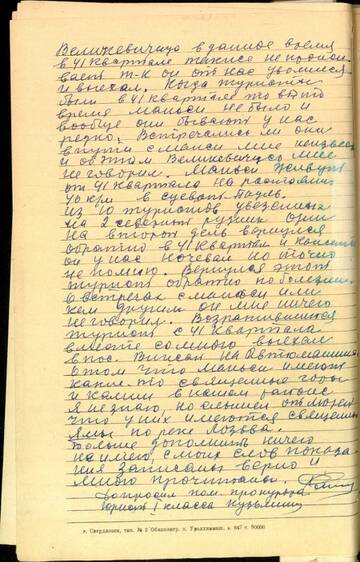 Великевичуса в данное время
в 41 квартале также не прожи-
вает т-к он от нас уволился
и выехал. Когда туристы
были в 41 квартале то в это
время манси не было и
вообще они бывают у нас
редко. Встречались ли они
в пути с манси мне неизвестно
и об этом Великевичус мне
не говорил. Манси живут
от 41 квартала на расстоянии
40 км в Суеват Пауль.
Из 10 туристов уехавших
на 2 северный рудник один
на второй день вернулся
обратно в 41 квартал и
он у нас ночевал но точно
не помню. Вернулся этот
турист обратно по болезни.
О встречах с манси или
кем другим он мне ничего
не говорил. Возвратившийся
турист с 41 квартала
вместе со мной выехал
в пос. Вижай на автомашине
О том что манси имеют
какие-то священные горы
и камни в нашем районе
я не знаю, но слышал от людей
что у них имеются священные
ямы по реке Лозьва.
Больше дополнить ничего
не имею, с моих слов показа-
ния записаны верно и
мною прочитаны.
Допросил пом. прокурора
юрист 1 класса Кузьминых
г. Свердловск, тип. № 2 Облполигр. п. Уралхиммаш, з. 847 т. 50000